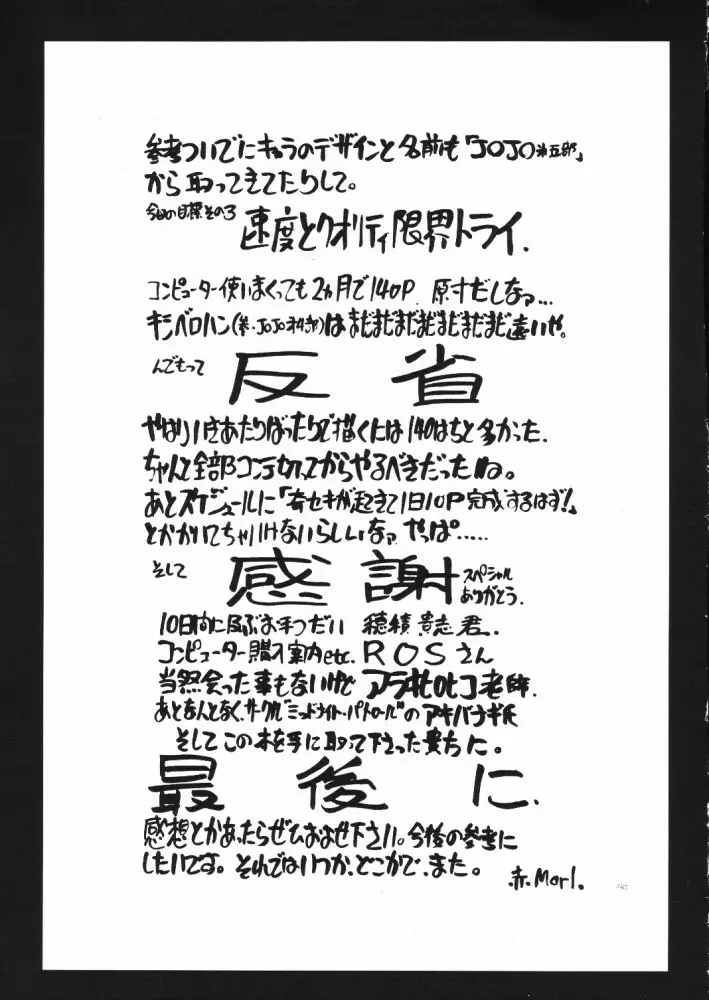 参考ついでにキャラのデザインと名前も「JOJO第五部」
から取ってきてたりして。
今回の目標その3 速度とクオリティ限界トライ.
コンピューター使いまくっても2ヵ月で140P. 原寸だしなァ…
キシベロハン(参・JOJO)はまだまだまだまだまだまだまだ遠いや。
んでもって 反省
やはり行きあたりばったりで描くには140はちと多かった.
ちゃんと全部コンテ切ってからやるべきだったね。
あとスケジュールに「奇セキが起きて1日10P完成するはず!」
とかかいてちゃいけないらしいなァ やっぱ.....
そして 感謝 スペシャルありがとう.
10日間に及ぶお手つだい 穂積貴志君.
コンピューター購入案内etc. ROSさん
当然会った事もないけど アラキヒロヒコ老師.
あとなんとなく、サークル"ミッドナイト・パトロール"のアキバナギ氏
そしてこの本を手に取って下さった貴方に。
最後に.
感想とかあったらぜひおよせ下さい。今後の参考に
したいです。それではいつか、どこかで、また。
赤.MorI.